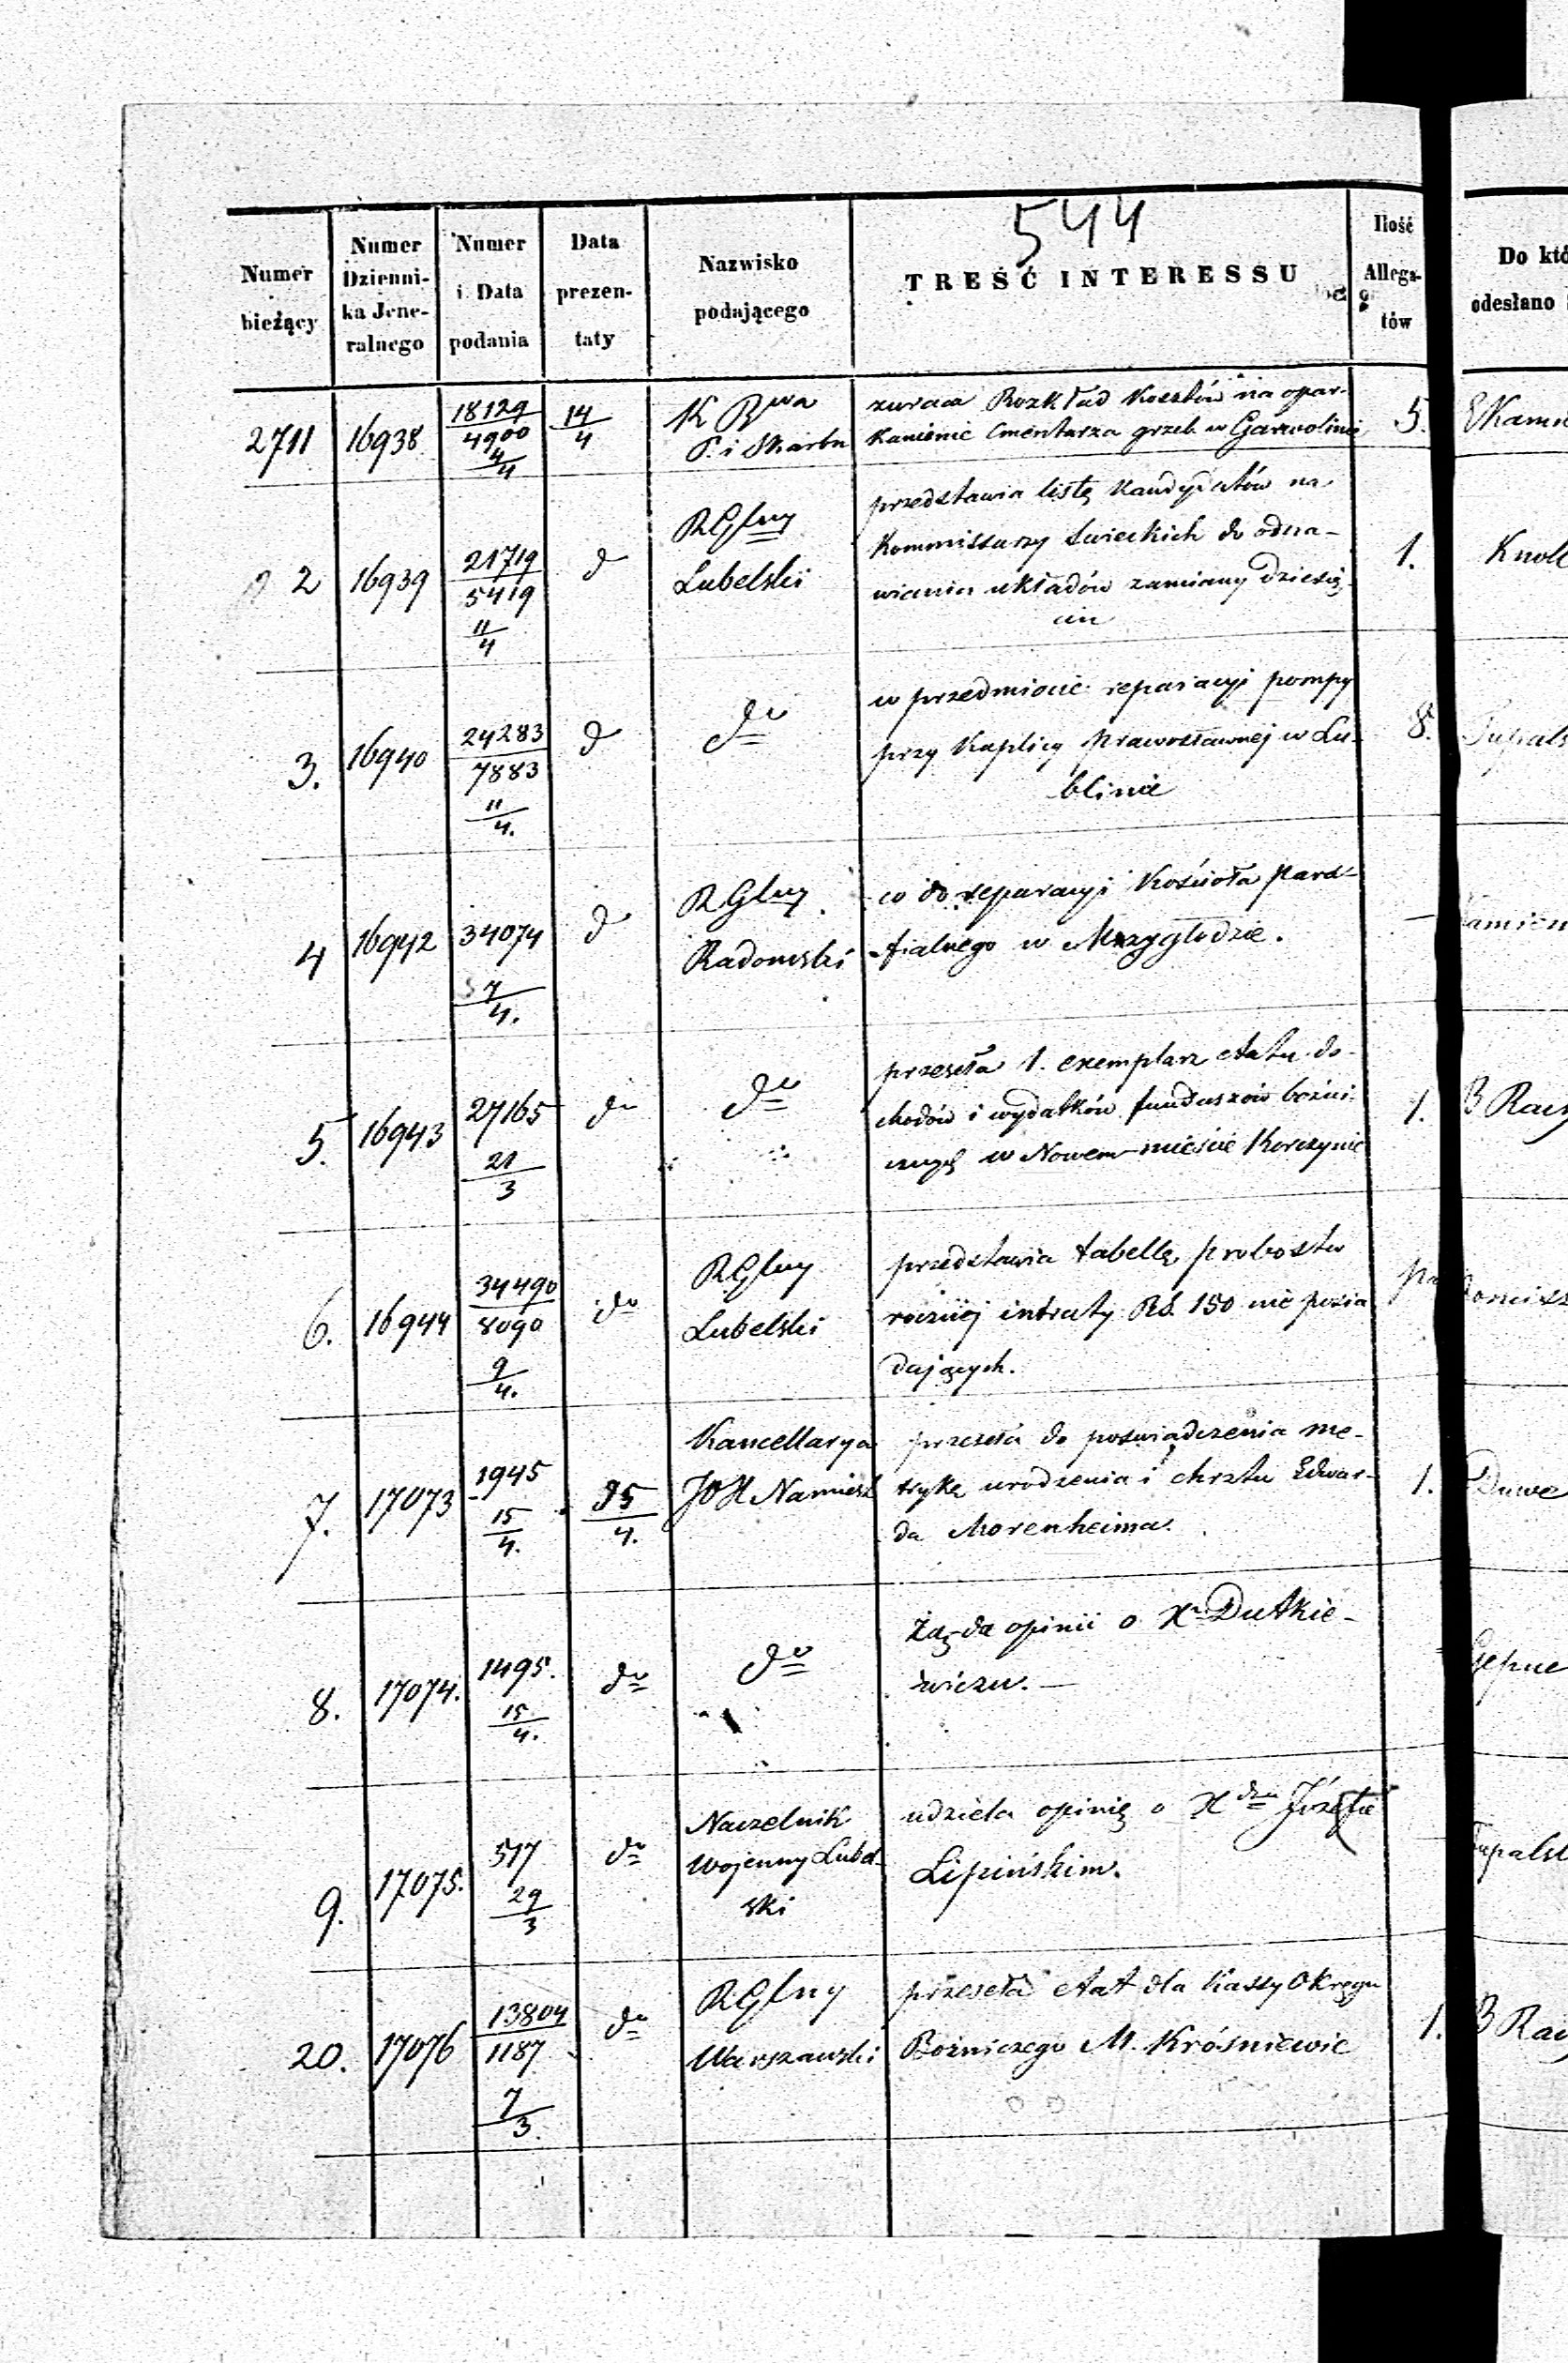 544
Numer bieżący
Numer Dzienni-
ka Jene-
ralnego
Numer i Data podania
Data prezen-
taty
Nazwisko podającego
TREŚĆ INTERESSU
Ilość Allega-
tów
Do któ
odesłano
2711
16938
18129
4900
4/4
14/4
K Rwa
P. i Skarbu
zwraca Rozkład Kosztów na opar-
kanienie Cmentarza grzeb w Garwolinie
5.
2
16939
21719
5419
11/4
d
RGlny
Lubelski
przedstawia listę Kandydatów na
Kommissarzy świeckich do odna-
wiania układów zamiany dziesię-
cin
1.
Knoll
3.
16940
24283
7883
11/4.
d
do
w przedmiocie reparacyi pompy
przy Kaplicy prawosławnej w Lu-
blinie
8.
4
16942
34074
7/4.
d
RGlny
Radomski
co do reparacyi Kościoła para-
fialnego w Mrzygłodzie.
—
amien
5.
16943
27165
21/3
do
do
przeseła 1. exemplarz etatu do-
chodów i wydatków funduszów bożni-
czych w Nowem-mieście Korczynie
1.
B Racz
6.
16944
34490
8090
9/4.
do
RGlny
Lubelski
przedstawia tabellę probostw
roczniej intraty RS. 150 nie posia
dających.
7.
17073
1945
15/4.
15/4.
Kancellarya
JO X Namiest
przeseła do poświadczenia me-
trykę urodzenia i chrztu Edwar-
da Morenheima.
1.
8.
17074.
1495.
15/4.
do
do
Żąda opinii o Xu Dutkie-
wiczu. —
9.
17075.
517
29/3
do
Naczelnik
Wojenny Lubel-
ski
udziela opinię o Xdzu Józefie
Lipińskim.
20.
17076
13804
1187
7/3.
do
RGlny
Warszawski
przeseła etat dla Kassy Okręgu
Bożniczego M. Krośniewic
1.
B Rac